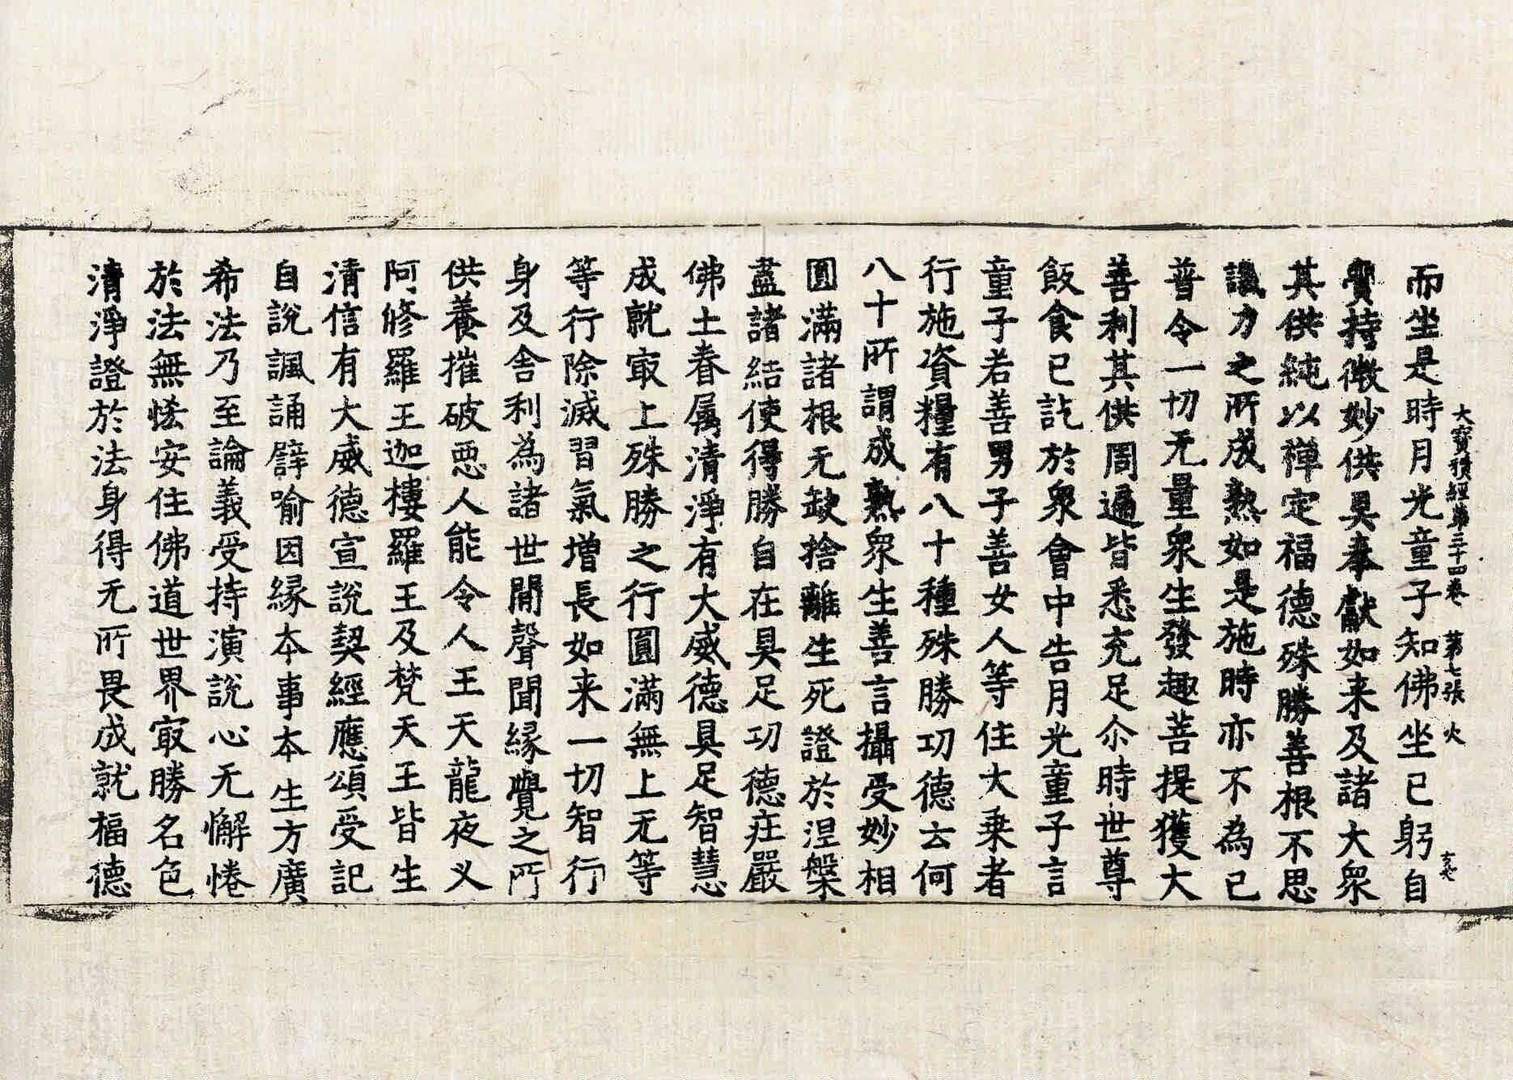 大寶積經第三十四卷　第七張　火
而坐是時月光童子知佛坐已躬自
賫持微妙供具奉獻如来及諸大衆
其供純以禅定福德殊勝善根不思
議力之所成熟如是施時亦不為已
普令一切无量衆生發趣菩提獲大
善利其供周遍皆悉充足尒時世尊
飯食已訖於衆會中告月光童子言
童子若善男子善女人等住大乗者
行施資糧有八十種殊勝功德云何
八十所謂成熟衆生善言攝受妙相
圓滿諸根无缺捨離生死證於涅槃
盡諸結使得勝自在具足功德庄嚴
佛土眷属清淨有大威德具足智慧
成就㝡上殊勝之行圓滿無上无等
等行除滅習氣增長如来一切智行
身及舍利為諸世間聲聞縁覺之所
供養摧破惡人能令人王天龍夜叉
阿脩羅王迦樓羅王及梵天王皆生
清信有大威德宣説契經應頌受記
自説諷誦譬喻因縁本事本生方廣
希法乃至論義受持演説心无懈惓
於法無恡安住佛道世界㝡勝名色
清淨證於法身得无所畏成就福德